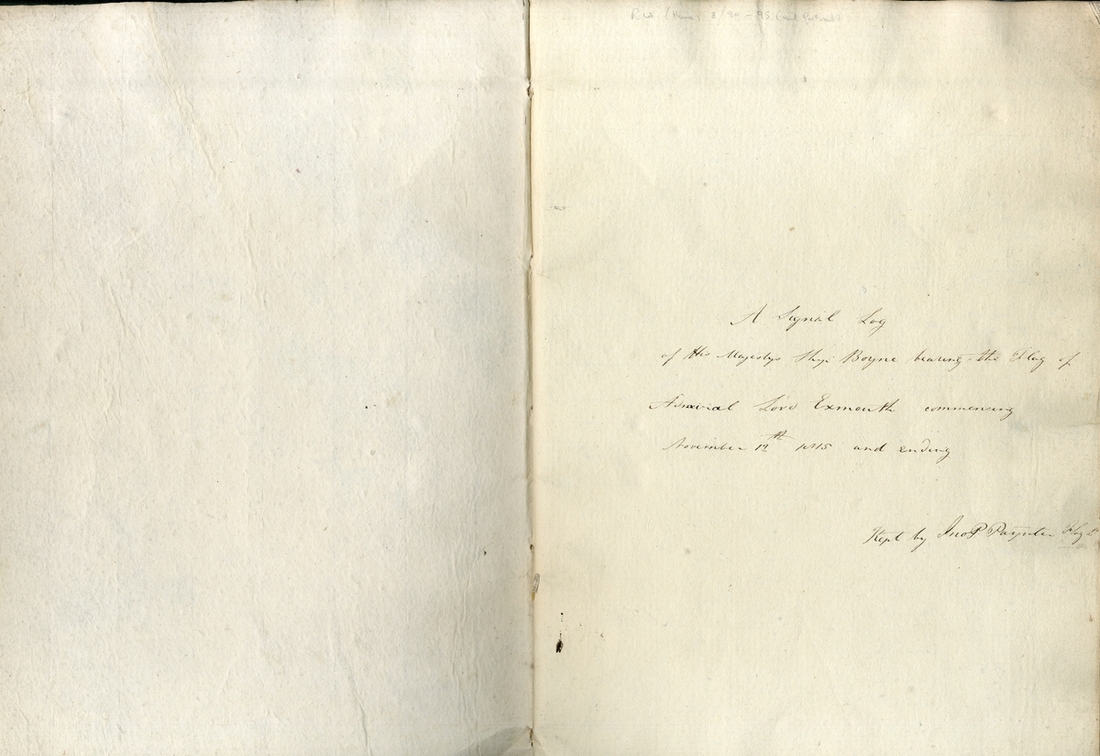 A Signal Log
of His Majestys Ship Boyne bearing the Flag of
Admiral Lord Exmouth commencing
November 12th 1815 and ending
Kept by Jno P Paynter